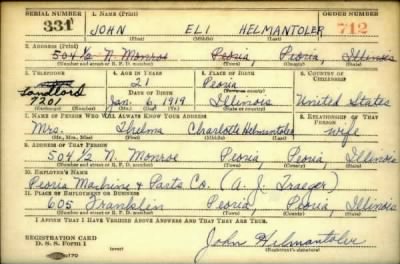 SERIAL NUMBER 1. NAME (Print) ORDER NUMBER
331 JOHN ELI HELMANTOLER 712
(First) (Middle) (Last)
2. ADDRESS (Print)
504 1/2 N. Monroe Peoria, Peoria, Illinois
(Number and street or R. F. D. number) (Town) (County) (State)
3. TELEPHONE 4. AGE IN YEARS 5. PLACE OF BIRTH 6. COUNTRY OF CITIZENSHIP
Landlord 21 Peoria
7201 DATE OF BIRTH
Jan. 6, 1919 Illinois United States
(Exchange) (Number) (Mo.) (Day) (Yr.) (State or country)
7. NAME OF PERSON WHO WILL ALWAYS KNOW YOUR ADDRESS 8. RELATIONSHIP OF THAT PERSON
Mrs. Thelma Charlotte Helmantoler wife
(Mr., Mrs., Miss) (First) (Middle) (Last)
9. ADDRESS OF THAT PERSON
504 1/2 N. Monroe Peoria, Peoria, Illinois
(Number and street or R. F. D. number) (Town) (County) (State)
10. EMPLOYER'S NAME
Peoria Machine & Parts Co. (A. J. Traeger)
11. PLACE OF EMPLOYMENT OR BUSINESS
605 Franklin Peoria, Peoria, Illinois
(Number and street or R. F. D. number) (Town) (County) (State)
I AFFIRM THAT I HAVE VERIFIED ABOVE ANSWERS AND THAT THEY ARE TRUE.
REGISTRATION CARD
D. S. S. Form 1 (over) John Helmantoler
(Registrant's signature)